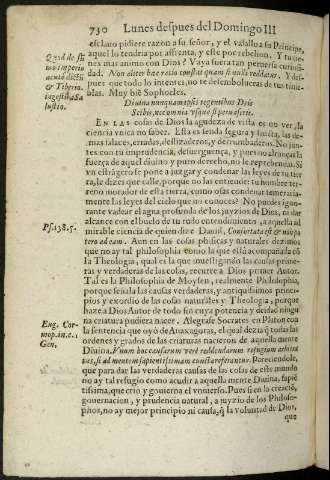 730 Lunes despues del Domingo III
esclavo pidiere razon a su señor, y el vasallo a su Principe,
aquel lo tendria por affrenta, y este por rebelion. Y tu tie-
nes mas animo con Dios? Vaya fuera tan perversa curiosi-
dad. Non aliter hæc ratio constat quam si nulli reddatur. Y des-
pues que todo lo intentes, no te desembolueras de tus tinie-
blas. Muy biē Sophocles.
Divina nunquam ipsis tegentibus Deis
Scibis, nec omnia usque si perveneris.
EN LAS cosas de Dios la agudeza de vista es no ver, la
ciencia unica no saber. Esta es senda segura y las de-
mas falaces, erradas, deslizaderos, y derrumbaderos. No jun-
tes con tu imprudencia, desverguença, y pues no alcanças la
fuerça de aquel divino y puro derecho, no le reprehendas. Si
un estrãgero se pone a juzgar y condenar las leyes de tu tier
ra, le dizes que calle, porque no las entiende: tu hombre ter-
reno morador de esta tierra, como osas condenar temeraria-
mente las leyes del cielo que no conoces? No puedes igno-
rante vadear el agua profunda de los juyzios de Dios, ni dar
alcance con el bucho de tu rudo entendimiento, a aquella ad
mirable ciencia de quien dize David, Confortata est & non po
tero ad eam. Aun en las cosas phisicas y naturales dezimos
que no ay tal philosophia como la que està acompañada cõ
la Theologia, qual es la que investigando las causas prime-
ras y verdaderas de las cosas, recurre a Dios primer Autor.
Tal es la Philosophia de Moysen, realmente Philolophia,
porque señala las causas verdaderas, y antiquissimos princi-
pios y exordio de las cosas naturales y Theologia, porque
haze a Dios Autor de todo sin cuya potencia y deidad ningu
na criatura pudiera nacer. Alegrase Socrates en Platon con
la sentencia que oyò de Anaxagoras, el qual dezia q̃ todas las
ordenes y grados de las criaturas nacieron de aquella mente
Divina. Unum hoc causarum veri reddendarum refugium arbitra
tus, si ad mentem sapientissimam omnia referantur. Pareciendole,
que para dar las verdaderas causas de las cosas de este mundo
no ay tal refugio como acudir a aquella mente Divina, sapiē
tissima, que crio y govierna el universo. Pues si en la creaciõ,
governacion, y prudencia natural, a juyzio de los Philoso-
phos, no ay mejor principio ni causa, q̃ la voluntad de Dios,
que
Ps. 138. 5.
Eug. Cor-
mop. in. c. 1
Gen.